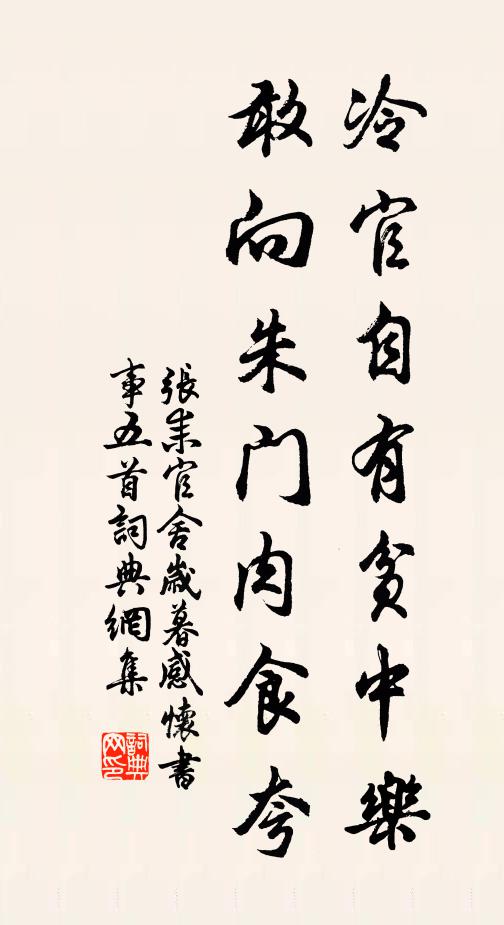 冷官自有貧中樂
敢向朱門肉食夸
張耒官舍歲暮感懷書
事五首詞典網集
詞典
网印